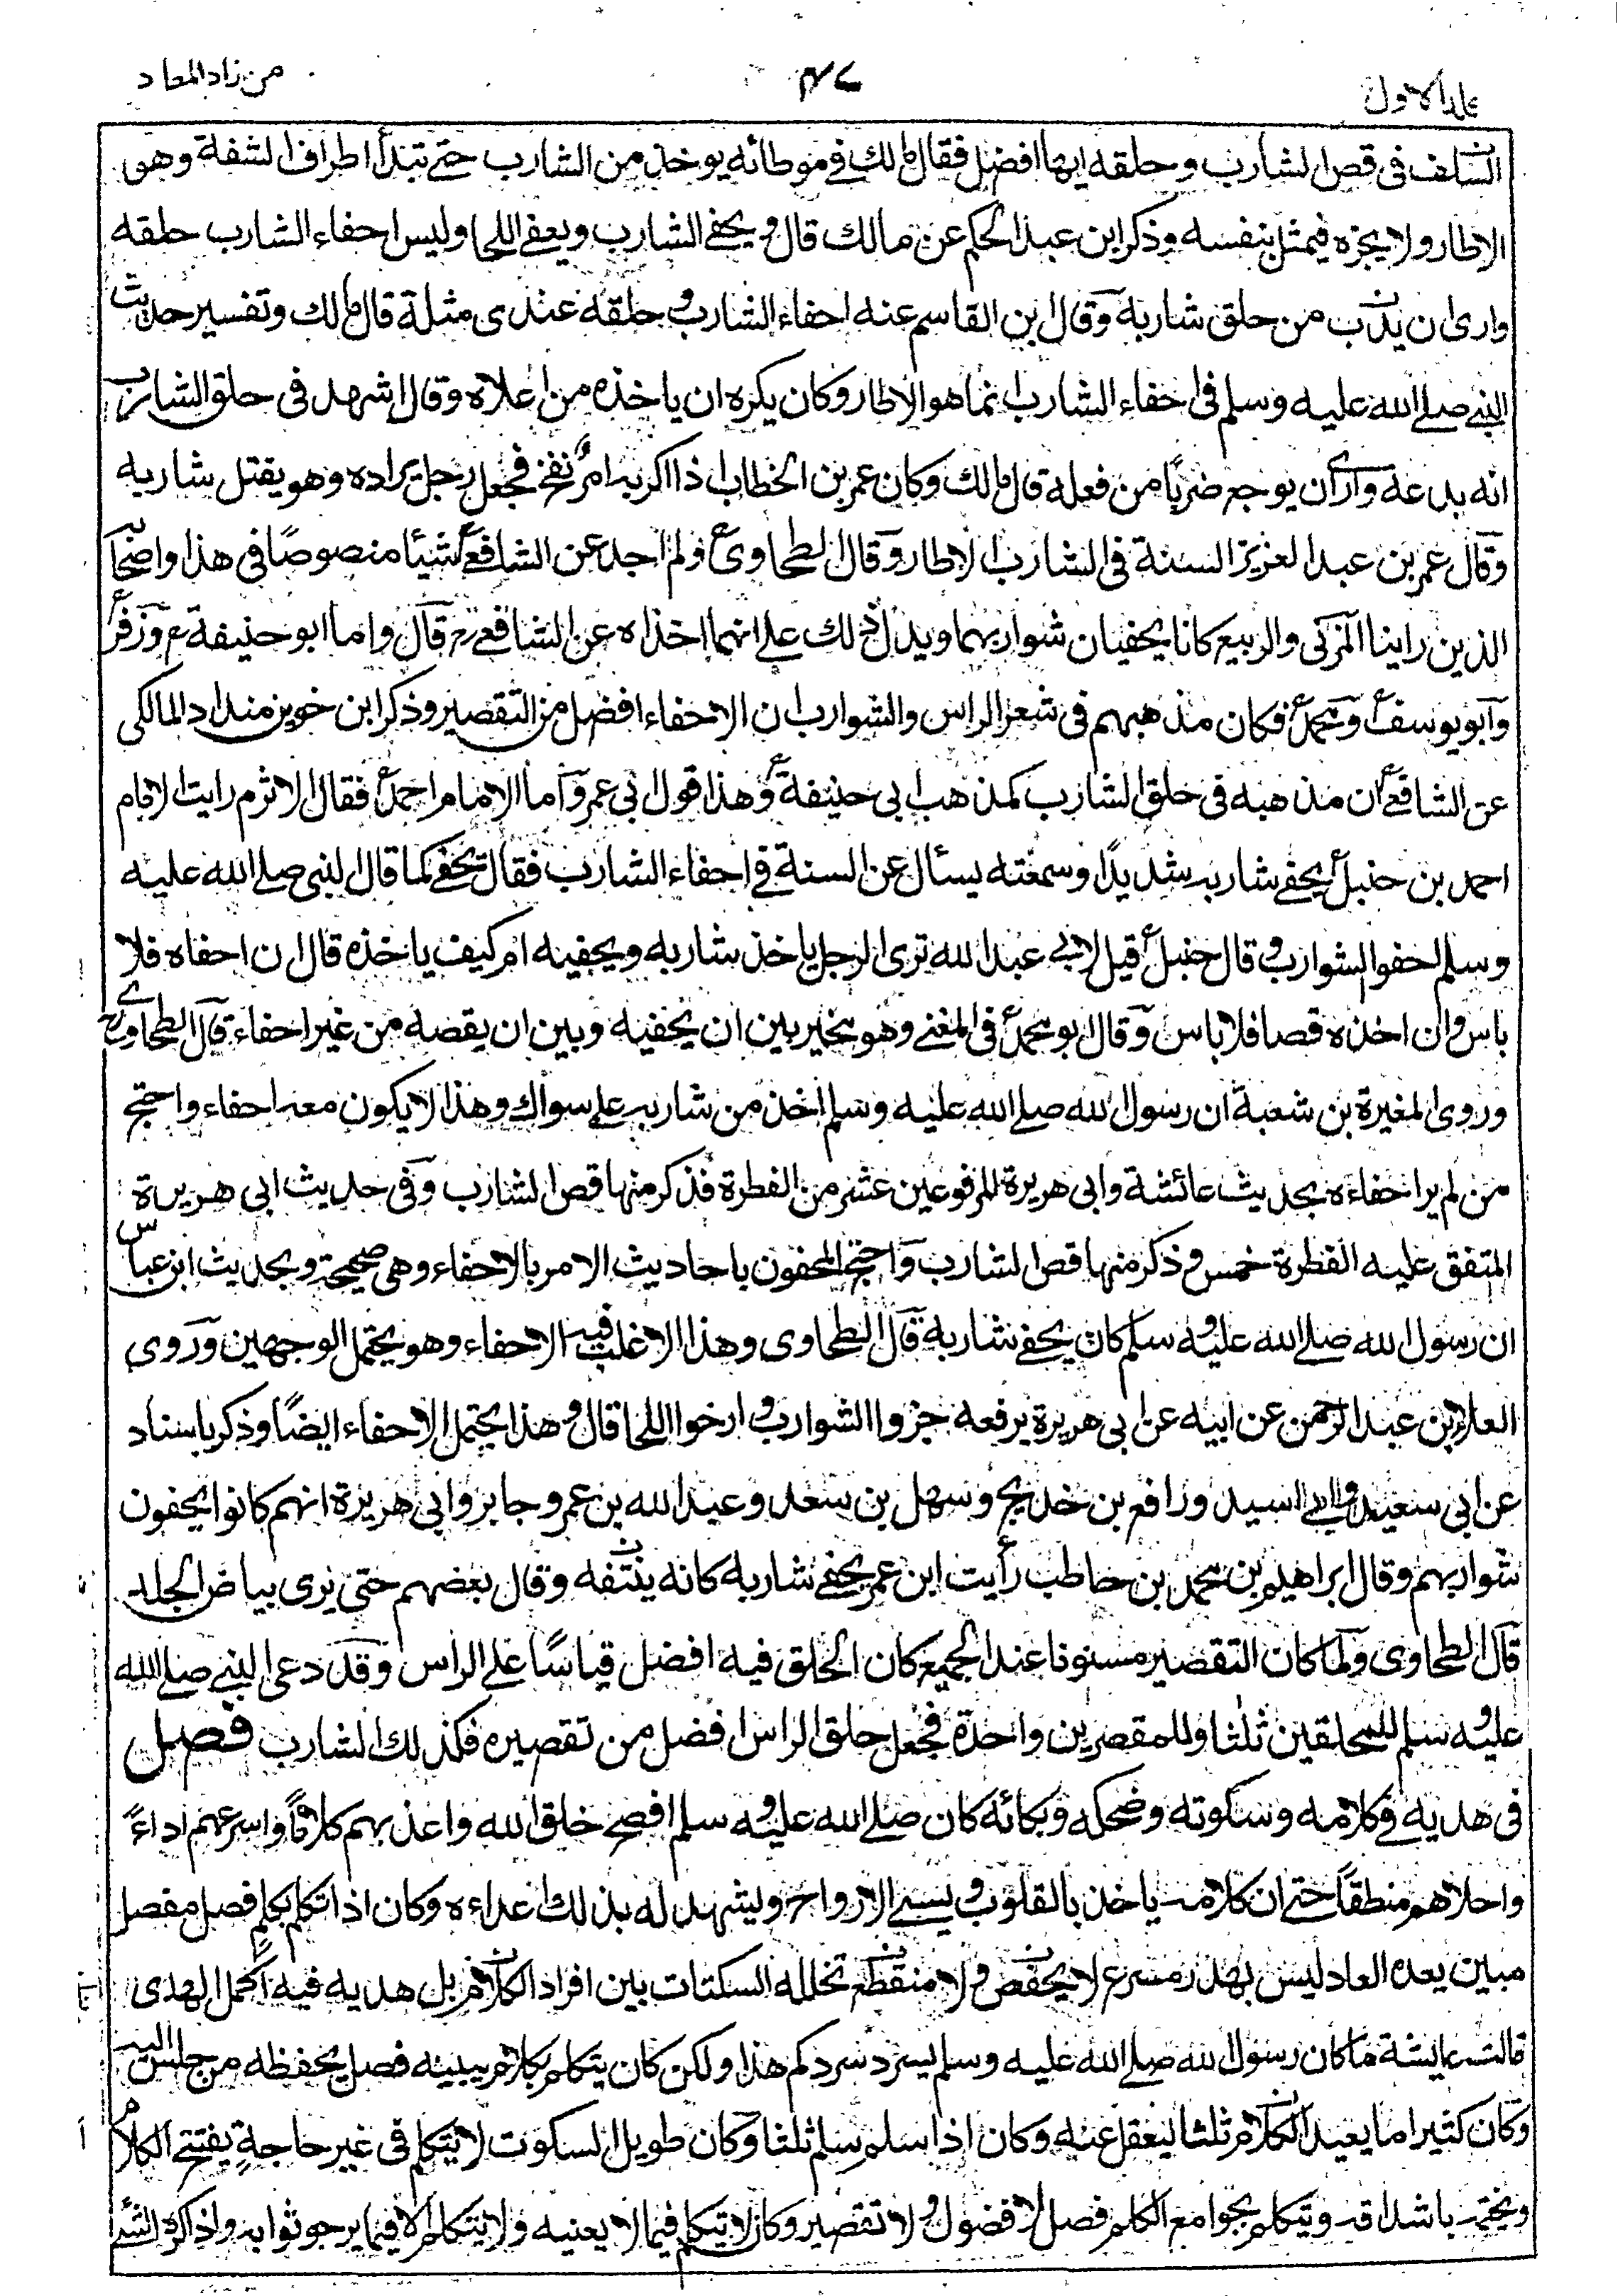 جلد الاول
٤٧
من زاد المعاد
السلف فى قص الشارب وحلقه ايها افضل فقال مالك فى موطائه يوخذ من الشارب حتى تبدأ اطراف الشفة وهو
الاطار ولا يجزه فيمثل بنفسه وذكر ابن عبد الحكم عن مالك قال ويحفى الشارب ويعفى اللحا وليس احفاء الشارب حلقه
وارى ان يؤدب من حلق شاربه وقال ابن القاسم عنه احفاء الشارب وحلقه عندى مثلة قال مالك وتفسير حديث
النبى صلى الله عليه وسلم فى احفاء الشارب انما هو الاطار وكان يكره ان ياخذه من اعلاه وقال اشهد فى حلق الشارب
انه بدعة وارى ان يوجع ضربًا من فعله قال مالك وكان عمر بن الخطاب اذا اكربه امرٌ نفخ فجعل رجل يراده وهو يفتل شاربه
وقال عمر بن عبد العزيز السنة فى الشارب الاطار وقال الطحاوى ولم اجد عن الشافعى شيئا منصوصًا فى هذا واصحابه
الذين راينا المزنى والربيع كانا يحفيان شواربهما ويدل ذلك على انهما اخذاه عن الشافعى قال واما ابو حنيفة وزفر
وابو يوسف ومحمد فكان مذهبهم فى شعر الراس والشوارب ان الاحفاء افضل من التقصير وذكر ابن خويز منداد المالكى
عن الشافعى ان مذهبه فى حلق الشارب كمذهب ابى حنيفة وهذا قول ابى عمر واما الامام احمد فقال الاثرم رايت الامام
احمد بن حنبل يحفى شاربه شديدًا وسمعته يسأل عن السنة فى احفاء الشارب فقال يحفى كما قال النبى صلى الله عليه
وسلم احفوا الشوارب وقال حنبل قيل لابى عبد الله ترى الرجل ياخذ شاربه ويحفيه ام كيف ياخذه قال ان احفاه فلا
باس وان اخذه قصا فلا باس وقال ابو محمد فى المغنى وهو مخير بين ان يحفيه وبين ان يقصه من غير احفاء قال الطحاوى
وروى المغيرة بن شعبة ان رسول الله صلى الله عليه وسلم اخذ من شاربه على سواك وهذا لا يكون معه احفاء واحتج
من لم ير احفاءه بحديث عائشة وابى هريرة المرفوعين عشر من الفطرة فذكر منها قص الشارب وفى حديث ابى هريرة
المتفق عليه الفطرة خمس وذكر منها قص الشارب واحتج المحفون باحاديث الامر بالاحفاء وهى صحيحة وبحديث ابن عباس
ان رسول الله صلى الله عليه وسلم كان يحفى شاربه قال الطحاوى وهذا الاغلب فيه الاحفاء وهو يحتمل الوجهين وروى
العلاء بن عبد الرحمن عن ابيه عن ابى هريرة يرفعه جزوا الشوارب وارخوا اللحا قال وهذا يحتمل الاحفاء ايضًا وذكر باسناد
عن ابى سعيد وابى اسيد ورافع بن خديج وسهل بن سعد وعبد الله بن عمر وجابر وابى هريرة انهم كانوا يحفون
شواربهم وقال ابراهيم بن محمد بن حاطب رأيت ابن عمر يحفى شاربه كانه ينتفه وقال بعضهم حتى يرى بياض الجلد
قال الطحاوى ولما كان التقصير مسنونا عند الجميع كان الحلق فيه افضل قياسًا على الراس وقد دعى النبى صلى الله
عليه وسلم للمحلقين ثلثا وللمقصرين واحدة فجعل حلق الراس افضل من تقصيره فكذلك الشارب فصل
فى هديه فى كلامه وسكوته وضحكه وبكائه كان صلى الله عليه وسلم افصح خلق الله واعذبهم كلامًا واسرعهم اداءً
واحلاهم منطقاً حتى ان كلامه ياخذ بالقلوب ويسبى الارواح ويشهد له بذلك اعداءه وكان اذا تكلم بكلم فصل مفصل
مبين يعده العاد ليس بهذر مسرع لا يحفظ ولا منقطع تخلله السكتات بين افراد الكلام بل هديه فيه اكمل الهدى
قالت عايشة ما كان رسول الله صلى الله عليه وسلم يسرد سردكم هذا ولكن كان يتكلم بكلام يبينه فصل يحفظه من جلس اليه
وكان كثيرا ما يعيد الكلام ثلثا ليعقل عنه وكان اذا سلم سلم ثلثا وكان طويل السكوت لا يتكلم فى غير حاجةٍ يفتتح الكلام
ويختمه باشداقه ويتكلم بجوامع الكلم فصل لا فضول ولا تقصير وكان لا يتكلم فيما لا يعنيه ولا يتكلم الا فيما يرجو ثوابه واذا كره الشئ